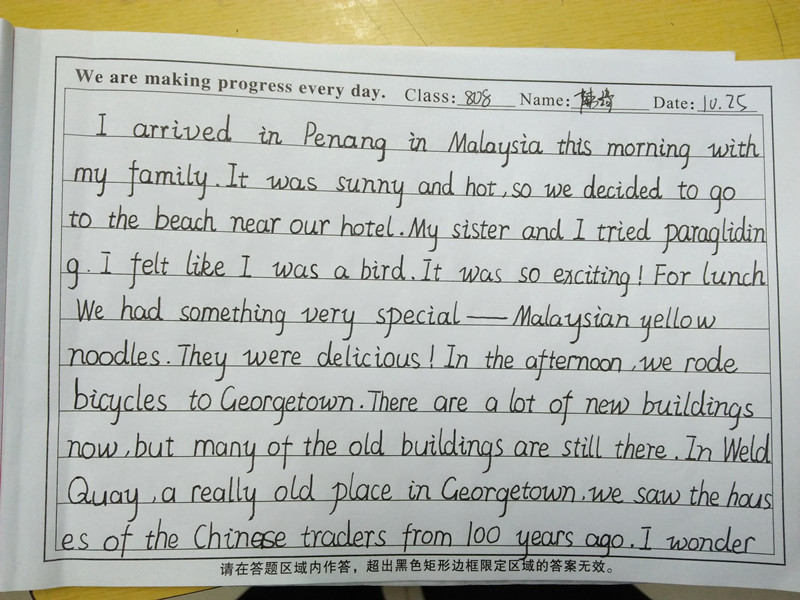 We are making progress every day. Class: 808 Name: 韩琦 Date: 10.25
I arrived in Penang in Malaysia this morning with
my family. It was sunny and hot, so we decided to go
to the beach near our hotel. My sister and I tried paraglidin
g. I felt like I was a bird. It was so exciting! For lunch
We had something very special — Malaysian yellow
noodles. They were delicious! In the afternoon, we rode
bicycles to Georgetown. There are a lot of new buildings
now, but many of the old buildings are still there. In Weld
Quay, a really old place in Georgetown, we saw the hous
es of the Chinese traders from 100 years ago. I wonder
请在答题区域内作答，超出黑色矩形边框限定区域的答案无效。